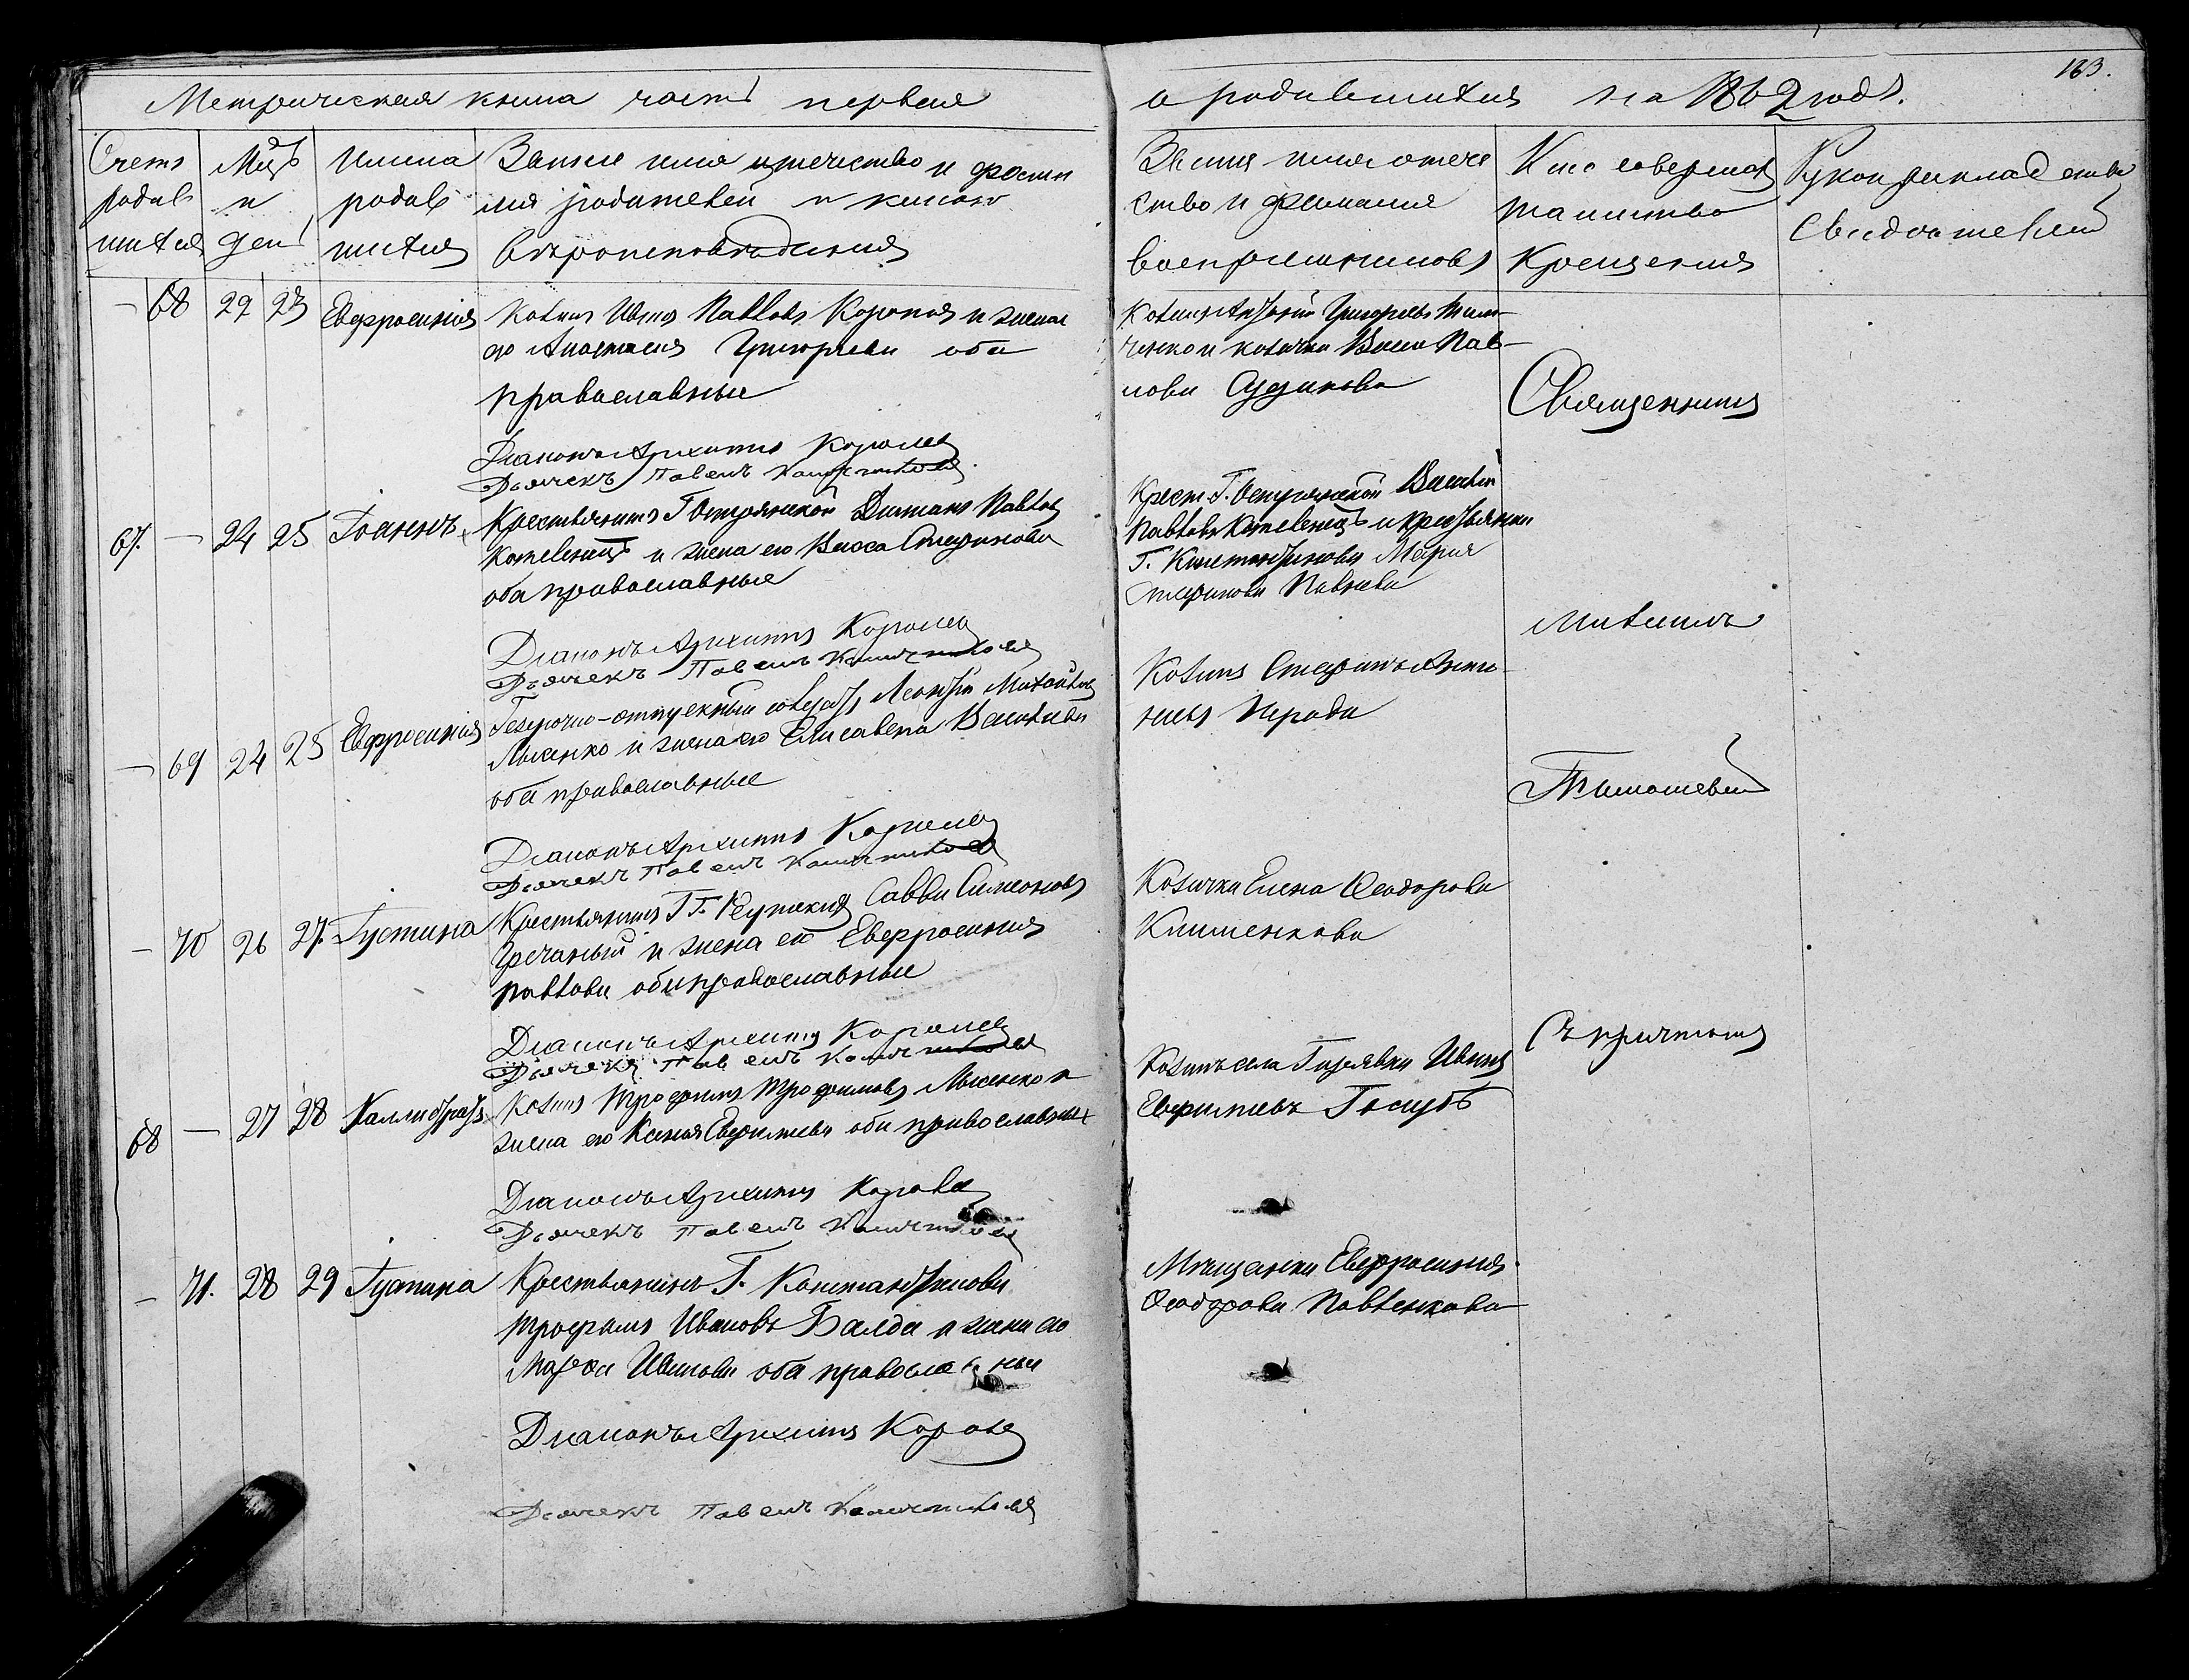 163.
Метрическая книга часть первая
о родившихся на 1862 годъ.
Счетъ родив шихся
Мцъ и день
Имена родив шихся
Званіе имя отечество и фами
лія родителей и какого
вѣроисповѣданія
Званіе имя отече
ство и фамилия
воспріемниковъ
Кто совершалъ
таинство
Крещенія
Рукоприклад ства
Свидѣтелей
— 68 22 23 Евфросинія
Козакъ Иванъ Павловъ и жена
его Анастасія Григорьева оба
православные
Діаконъ Архиппъ Королев
Дьячекъ Павелъ
Козакъ Григорьевъ
и козачка Пав-
лова
Священникъ
67. — 24 25 Іоаннъ
Крестьянинъ Г. Павловъ
и жена его Васса Стефанова
оба православные
Діаконъ Архиппъ Королев
Дьячекъ Павелъ
Крест. Г. Василій
Павловъ и крестьянка
Г. Константинова Марія
Стефанова
Михаилъ
— 69 24 25 Евфросинія
Безсрочно-отпускный солдатъ Леонтій Михайловъ
Лысенко и жена его Елисавета Васильева
оба православные
Діаконъ Архиппъ Королев
Дьячекъ Павелъ
Козакъ Стефанъ
Тимошевскій
— 70 26 27. Іустина
Крестьянинъ Савва Симеоновъ
Гречаный и жена его Евфросинія
Павлова оба православные
Діаконъ Архиппъ Королев
Дьячекъ Павелъ
Козачка Елена Феодорова
Клименкова
Съ причтомъ
68 — 27 28 Каллистратъ
Козакъ Трофимъ Трофимовъ Лысенко и
жена его Ксенія Евфимиева оба православные
Діаконъ Архиппъ Королев
Дьячекъ Павелъ
Козакъ села Гирявки Иванъ
Евфимиевъ Голубъ
— 71. 28 29 Іустина
Крестьянинъ Г. Константинова
Трофимъ Ивановъ Балда и жена его
Марфа Иванова оба православные
Діаконъ Архиппъ Королев
Дьячекъ Павелъ
Мѣщанка Евфросинія
Феодорова Павленкова